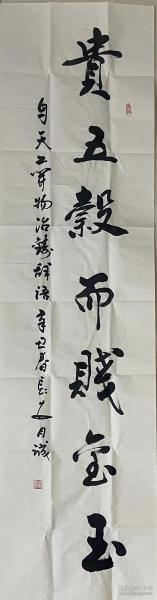 貴五穀而賤金玉
自天工開物治鑄辞語辛巳春長文月誠